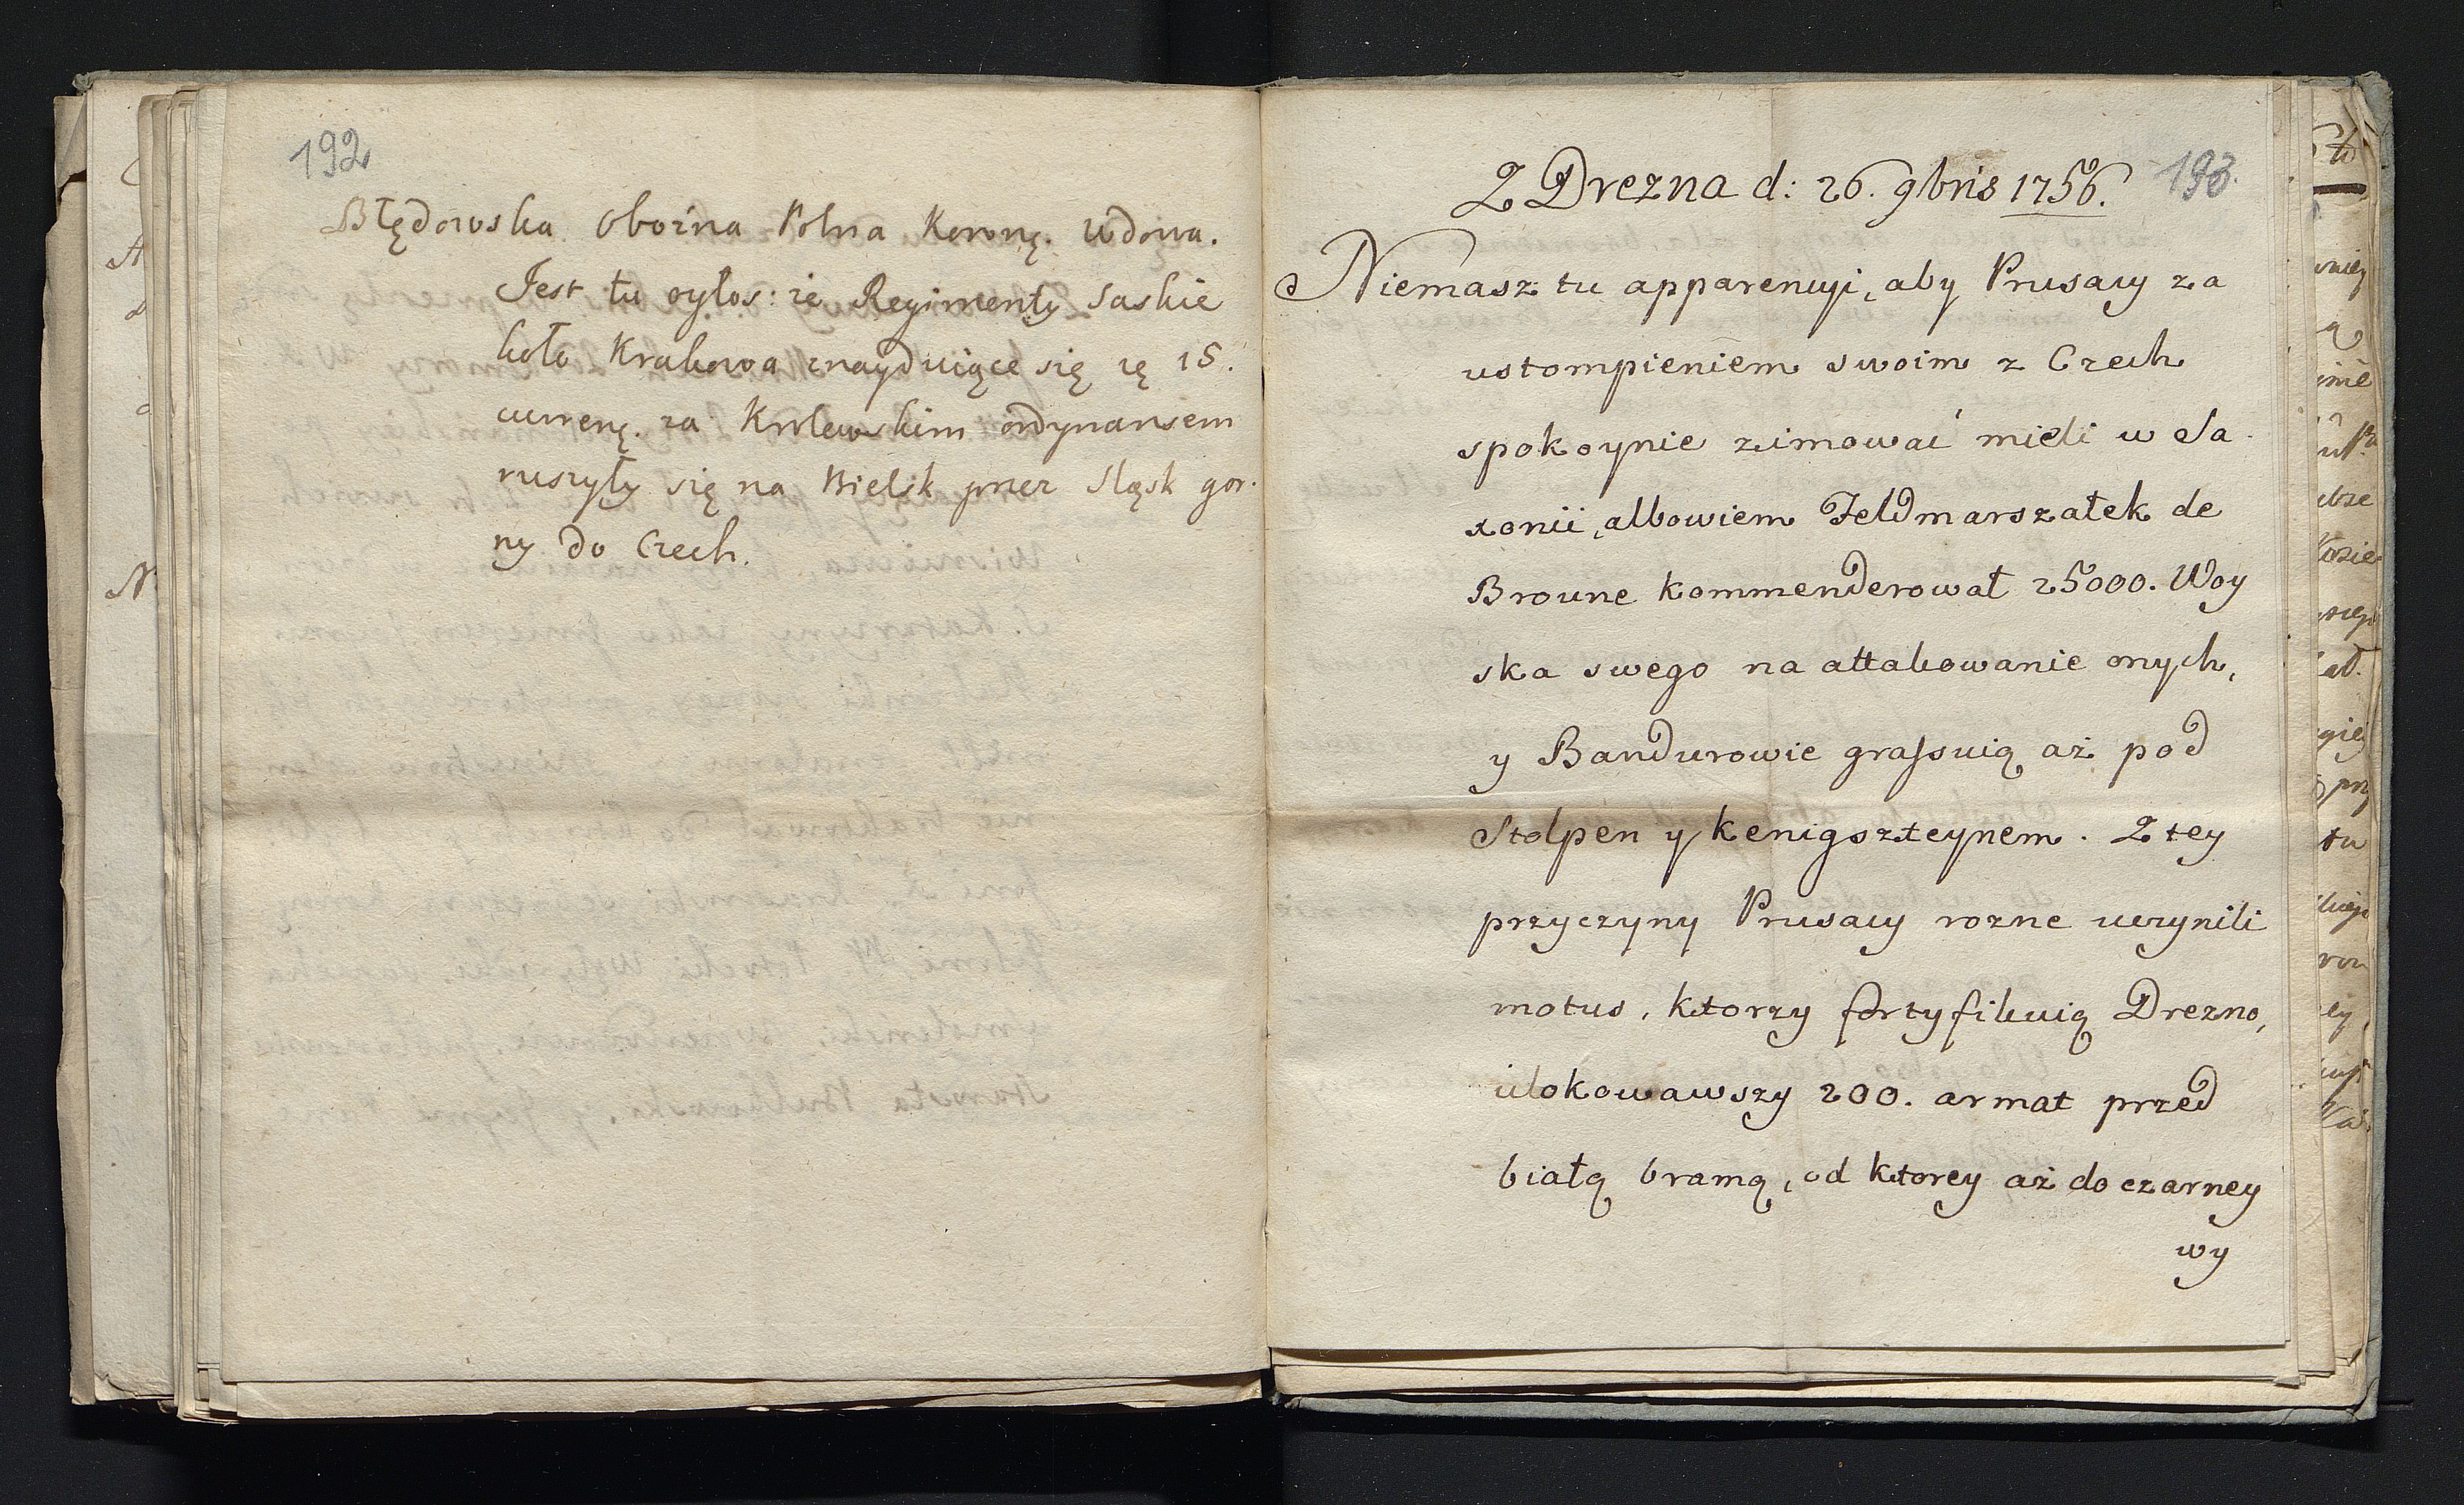 192
Błędowska Oboźna Polna Koronę. Wdowa.
Jest tu ogłos: że Regimenty Saskie
koło Krakowa znayduiące się ię 15.
currenę. za Krolewskim ordynansem
ruszyły się na Bielsk przez Sląsk gor-
ny do Czech.
193.
Z Drezna d: 26. 9bris 1756.
Niemasz tu apparencyi, aby Prusacy za
ustompieniem swoim z Czech
spokoynie zimować mieli w Sa-
xonii, albowiem Feldmarszałek de
Broune kommenderował 25000. Woy
ska swego na attakowanie onych,
y Bandurowie grassuią aż pod
Stolpen y Kenigszteynem. Z tey
przyczyny Prusacy rozne uczynili
motus, ktorzy fortyfikuią Drezno,
ulokowawszy 200. armat przed
białą bramą, od ktorey aż do czarney
wy